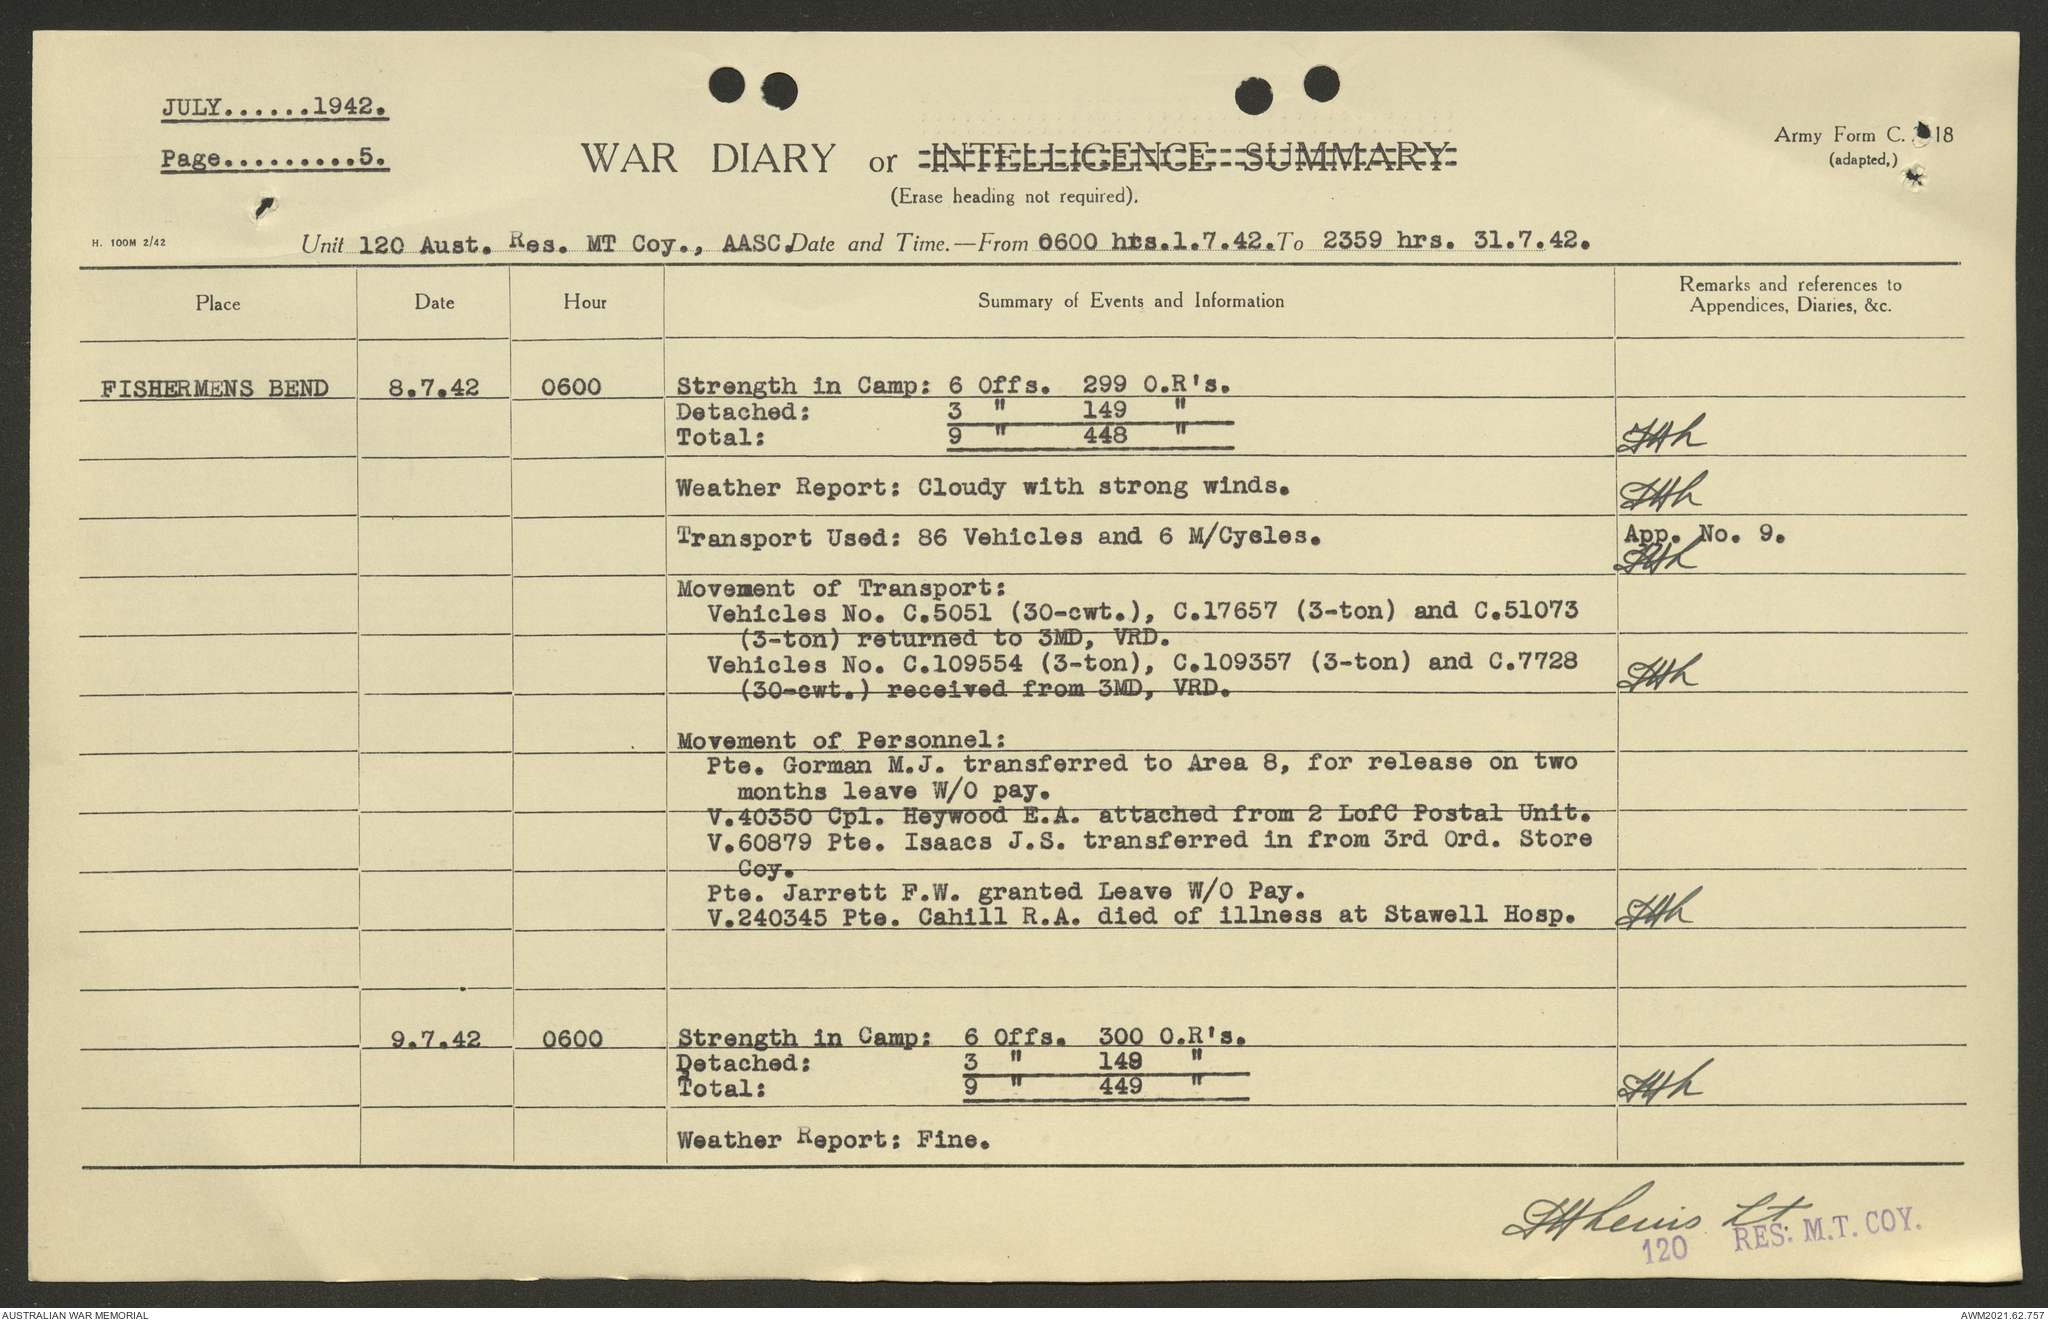 JULY......1942.
Page.........5.
WAR DIARY or INTELLIGENCE SUMMARY
(Erase heading not required).
Army Form C. 18
(adapted,)
H. 100M 2/42
Unit 120 Aust. Res. MT Coy., AASC. Date and Time.—From 0600 hrs.1.7.42. To 2359 hrs. 31.7.42.
Place Date Hour Summary of Events and Information Remarks and references to
Appendices, Diaries, &c.
FISHERMENS BEND 8.7.42 0600 Strength in Camp: 6 Offs. 299 O.R's.
Detached: 3 " 149 "
Total: 9 " 448 "
Weather Report: Cloudy with strong winds.
Transport Used: 86 Vehicles and 6 M/Cycles. App. No. 9.
Movement of Transport:
Vehicles No. C.5051 (30-cwt.), C.17657 (3-ton) and C.51073
(3-ton) returned to 3MD, VRD.
Vehicles No. C.109554 (3-ton), C.109357 (3-ton) and C.7728
(30-cwt.) received from 3MD, VRD.
Movement of Personnel:
Pte. Gorman M.J. transferred to Area 8, for release on two
months leave W/O pay.
V.40350 Cpl. Heywood E.A. attached from 2 LofC Postal Unit.
V.60879 Pte. Isaacs J.S. transferred in from 3rd Ord. Store
Coy.
Pte. Jarrett F.W. granted Leave W/O Pay.
V.240345 Pte. Cahill R.A. died of illness at Stawell Hosp.
9.7.42 0600 Strength in Camp: 6 Offs. 300 O.R's.
Detached: 3 " 149 "
Total: 9 " 449 "
Weather Report: Fine.
Lewis Lt
120 RES: M.T. COY.
AUSTRALIAN WAR MEMORIAL
AWM2021.62.757